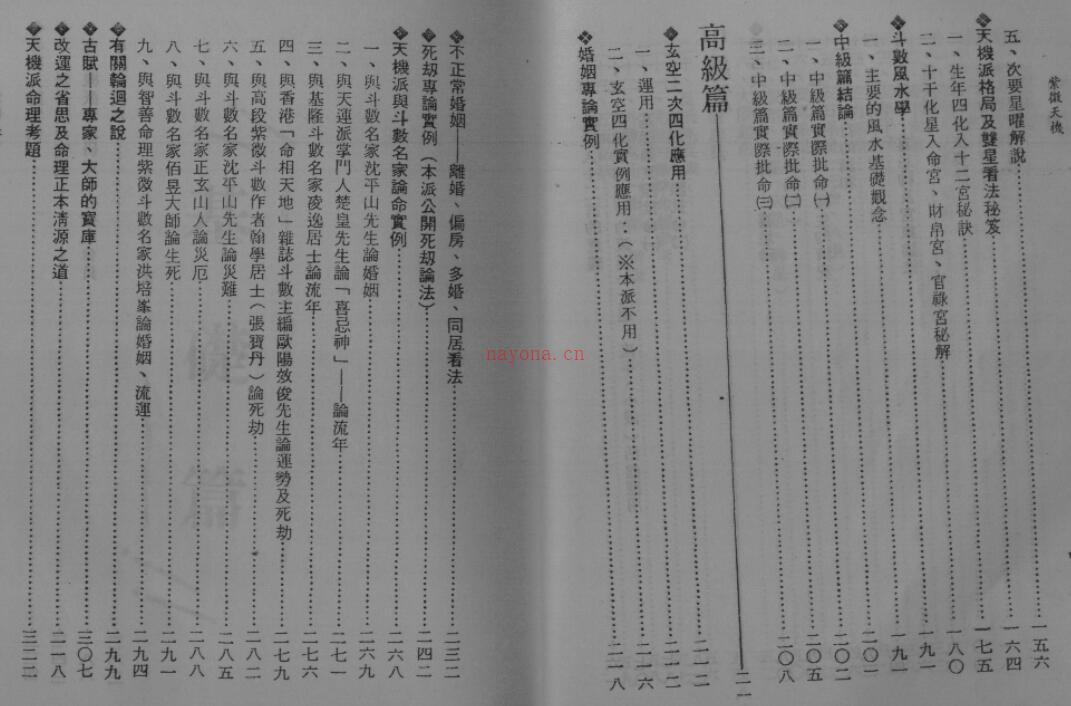 紫微天機
五、次要星曜解說……一五六
❖天機派格局及雙星看法秘笈……一六四
一、生年四化入十二宮秘訣……一七五
二、十干化星入命宮、財帛宮、官祿宮秘解……一八〇
❖斗數風水學……一九一
一、主要的風水基礎觀念……一九一
❖中級篇結論……二〇一
一、中級篇實際批命㈠……二〇二
二、中級篇實際批命㈡……二〇五
三、中級篇實際批命㈢……二〇八
高級篇……二一一
❖玄空二次四化應用……二一二
一、運用……二一二
二、玄空四化實例應用..(※本派不用)……二一六
❖婚姻專論實例……二一八
❖不正常婚姻——離婚、偏房、多婚、同居看法……二三二
❖死劫專論實例(本派公開死劫論法)……二四二
❖天機派與斗數名家論命實例……二六八
一、與斗數名家沈平山先生論婚姻……二六九
二、與天運派掌門人楚皇先生論「喜忌神」——論流年……二七一
三、與基隆斗數名家凌逸居士論流年……二七六
四、與香港「命相天地」雜誌斗數主編歐陽效俊先生論運勢及死劫……二七九
五、與高段紫微斗數作者翰學居士(張寶丹)論死劫……二八二
六、與斗數名家沈平山先生論災難……二八五
七、與斗數名家正玄山人論災厄……二八八
八、與斗數名家佰昱大師論生死……二九一
九、與智善命理紫微斗數名家洪培峯論婚姻、流運……二九四
❖有關輪迴之說……二九九
❖古賦——專家、大師的寶庫……三〇七
❖改運之省思及命理正本清源之道……二一八
❖天機派命理考題……三二二
nayona.cn